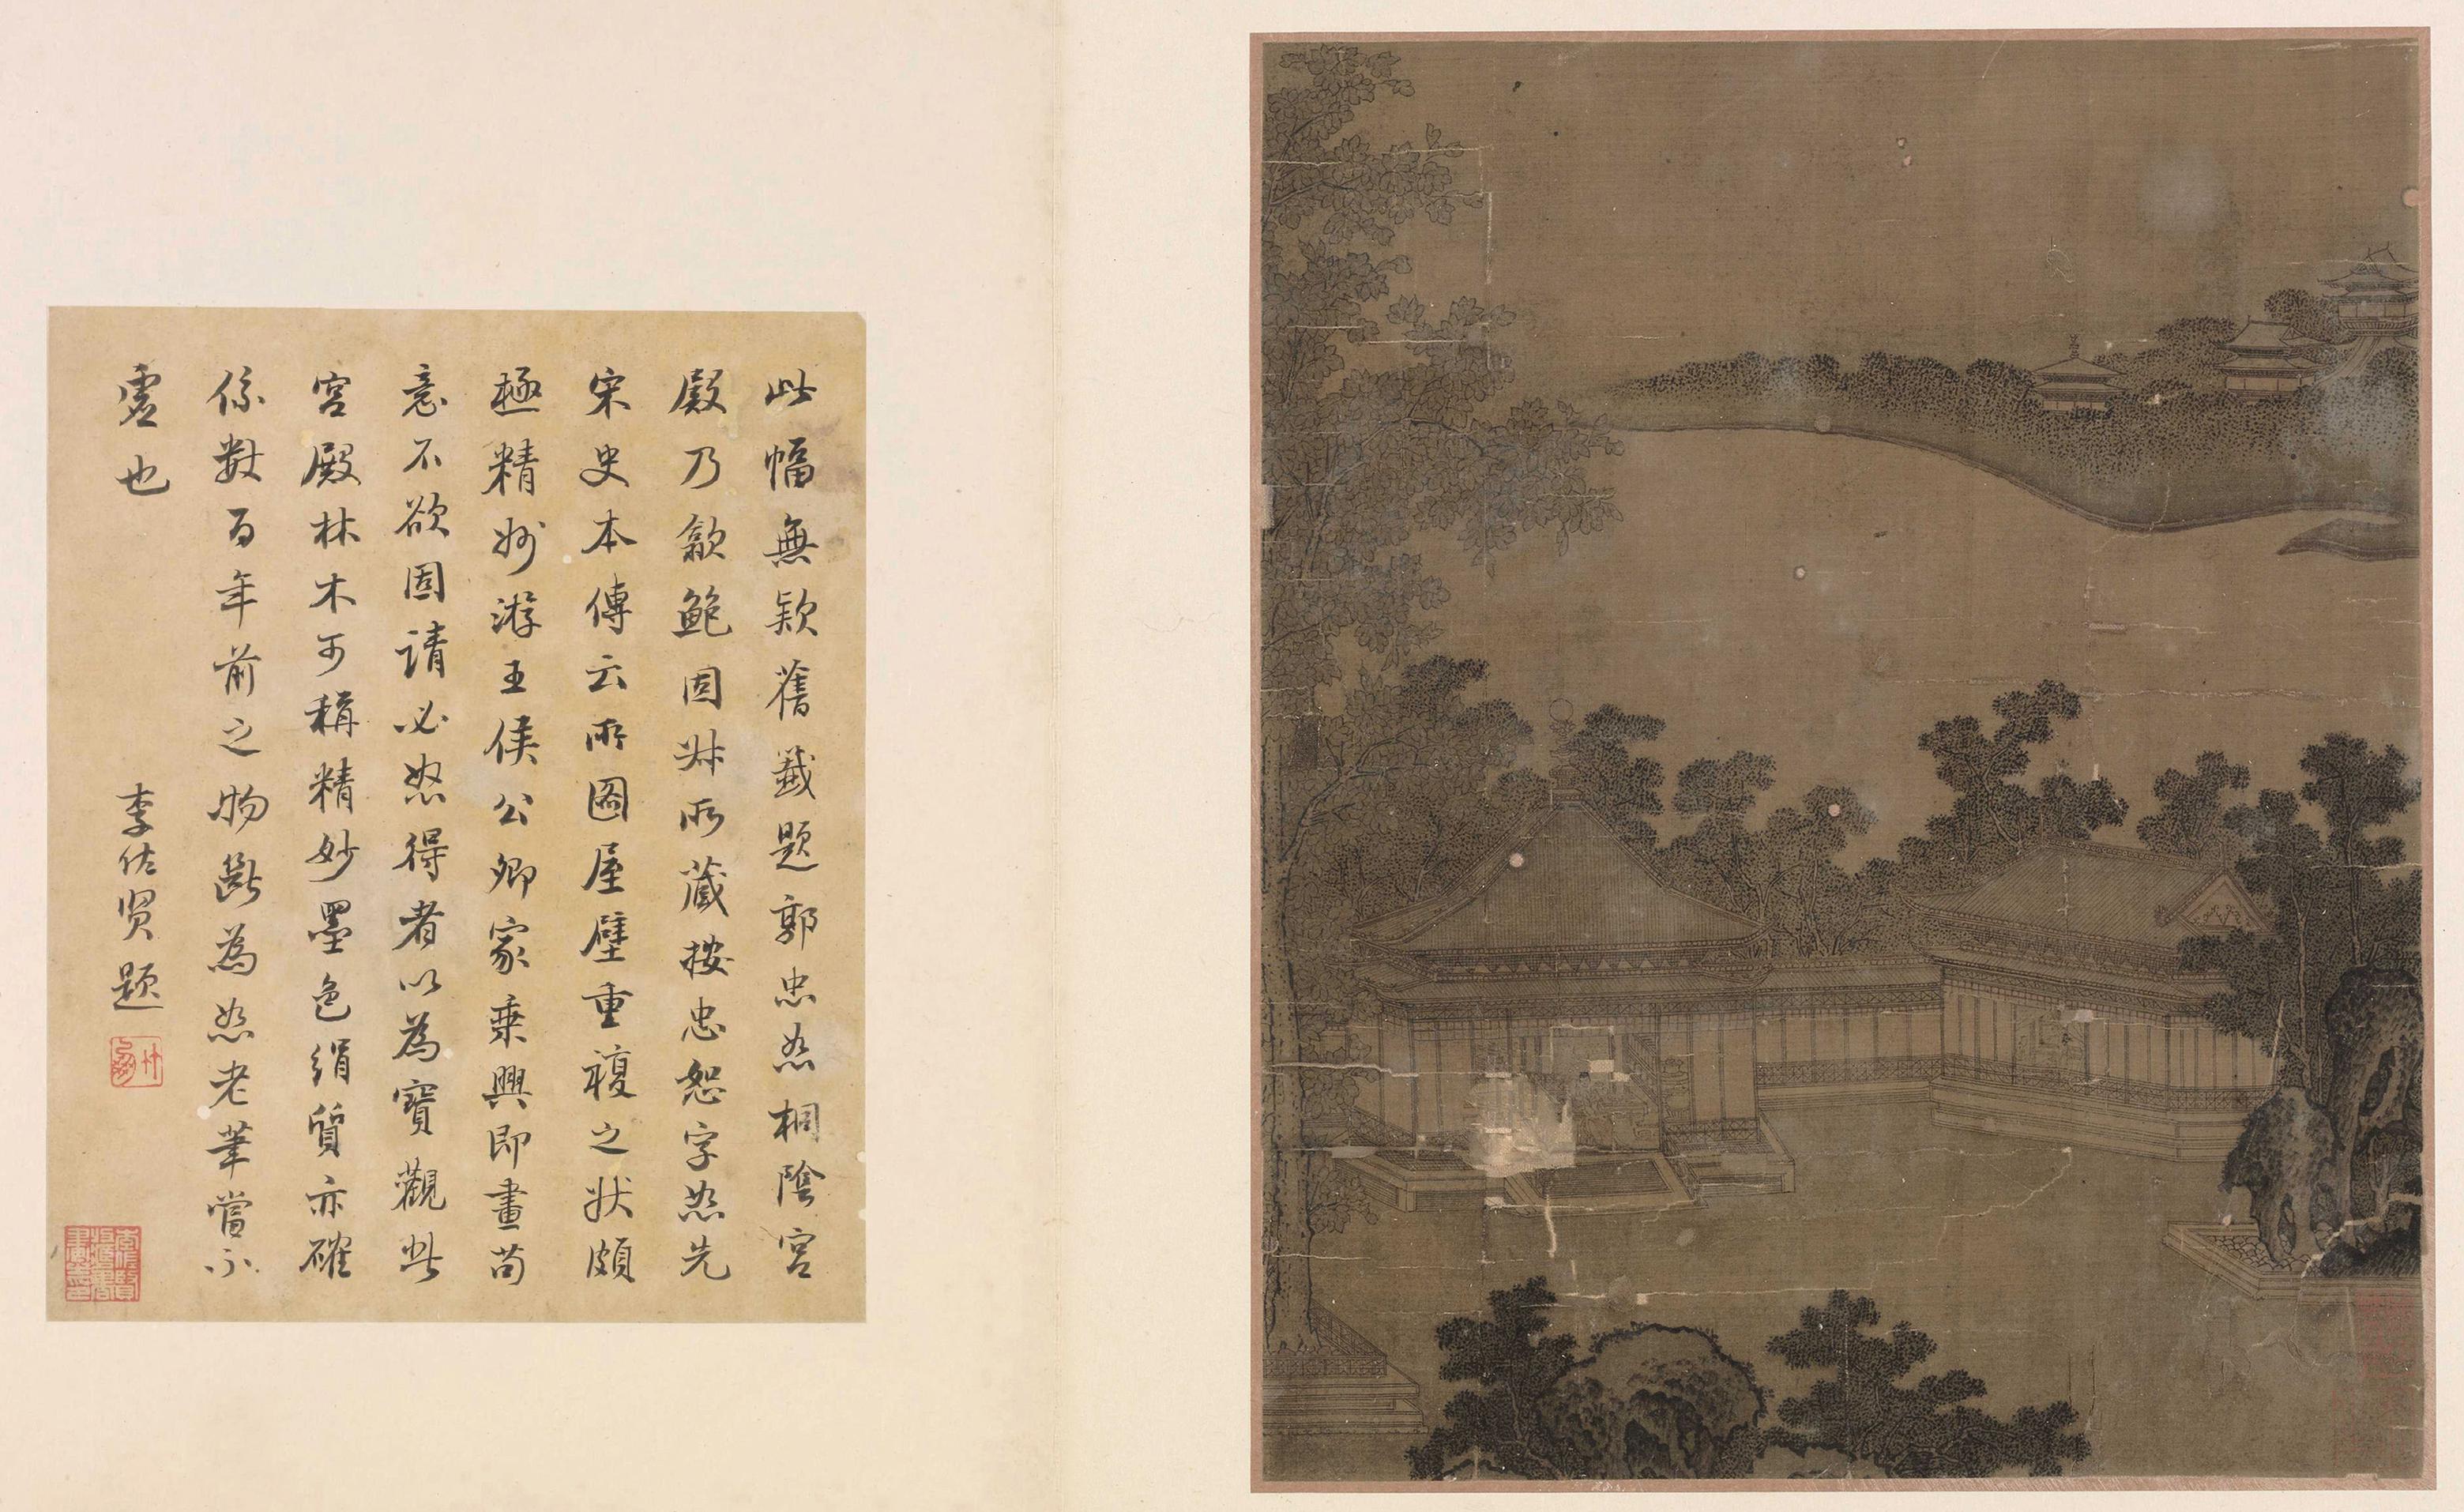 此幅無欵舊籤題郭忠恕桐陰宮
殿乃歙鮑固叔所藏按忠恕字恕先
宋史本傳云所圖屋壁重複之狀頗
極精妙游王侯公卿家乗興即畫苟
意不欲固請必怒得者以為寶觀此
宮殿林木可稱精妙墨色絹質亦確
係數百年前之物斷為恕老筆當不
虛也
李佐賢題
竹朋
李佐賢收藏書畫之印